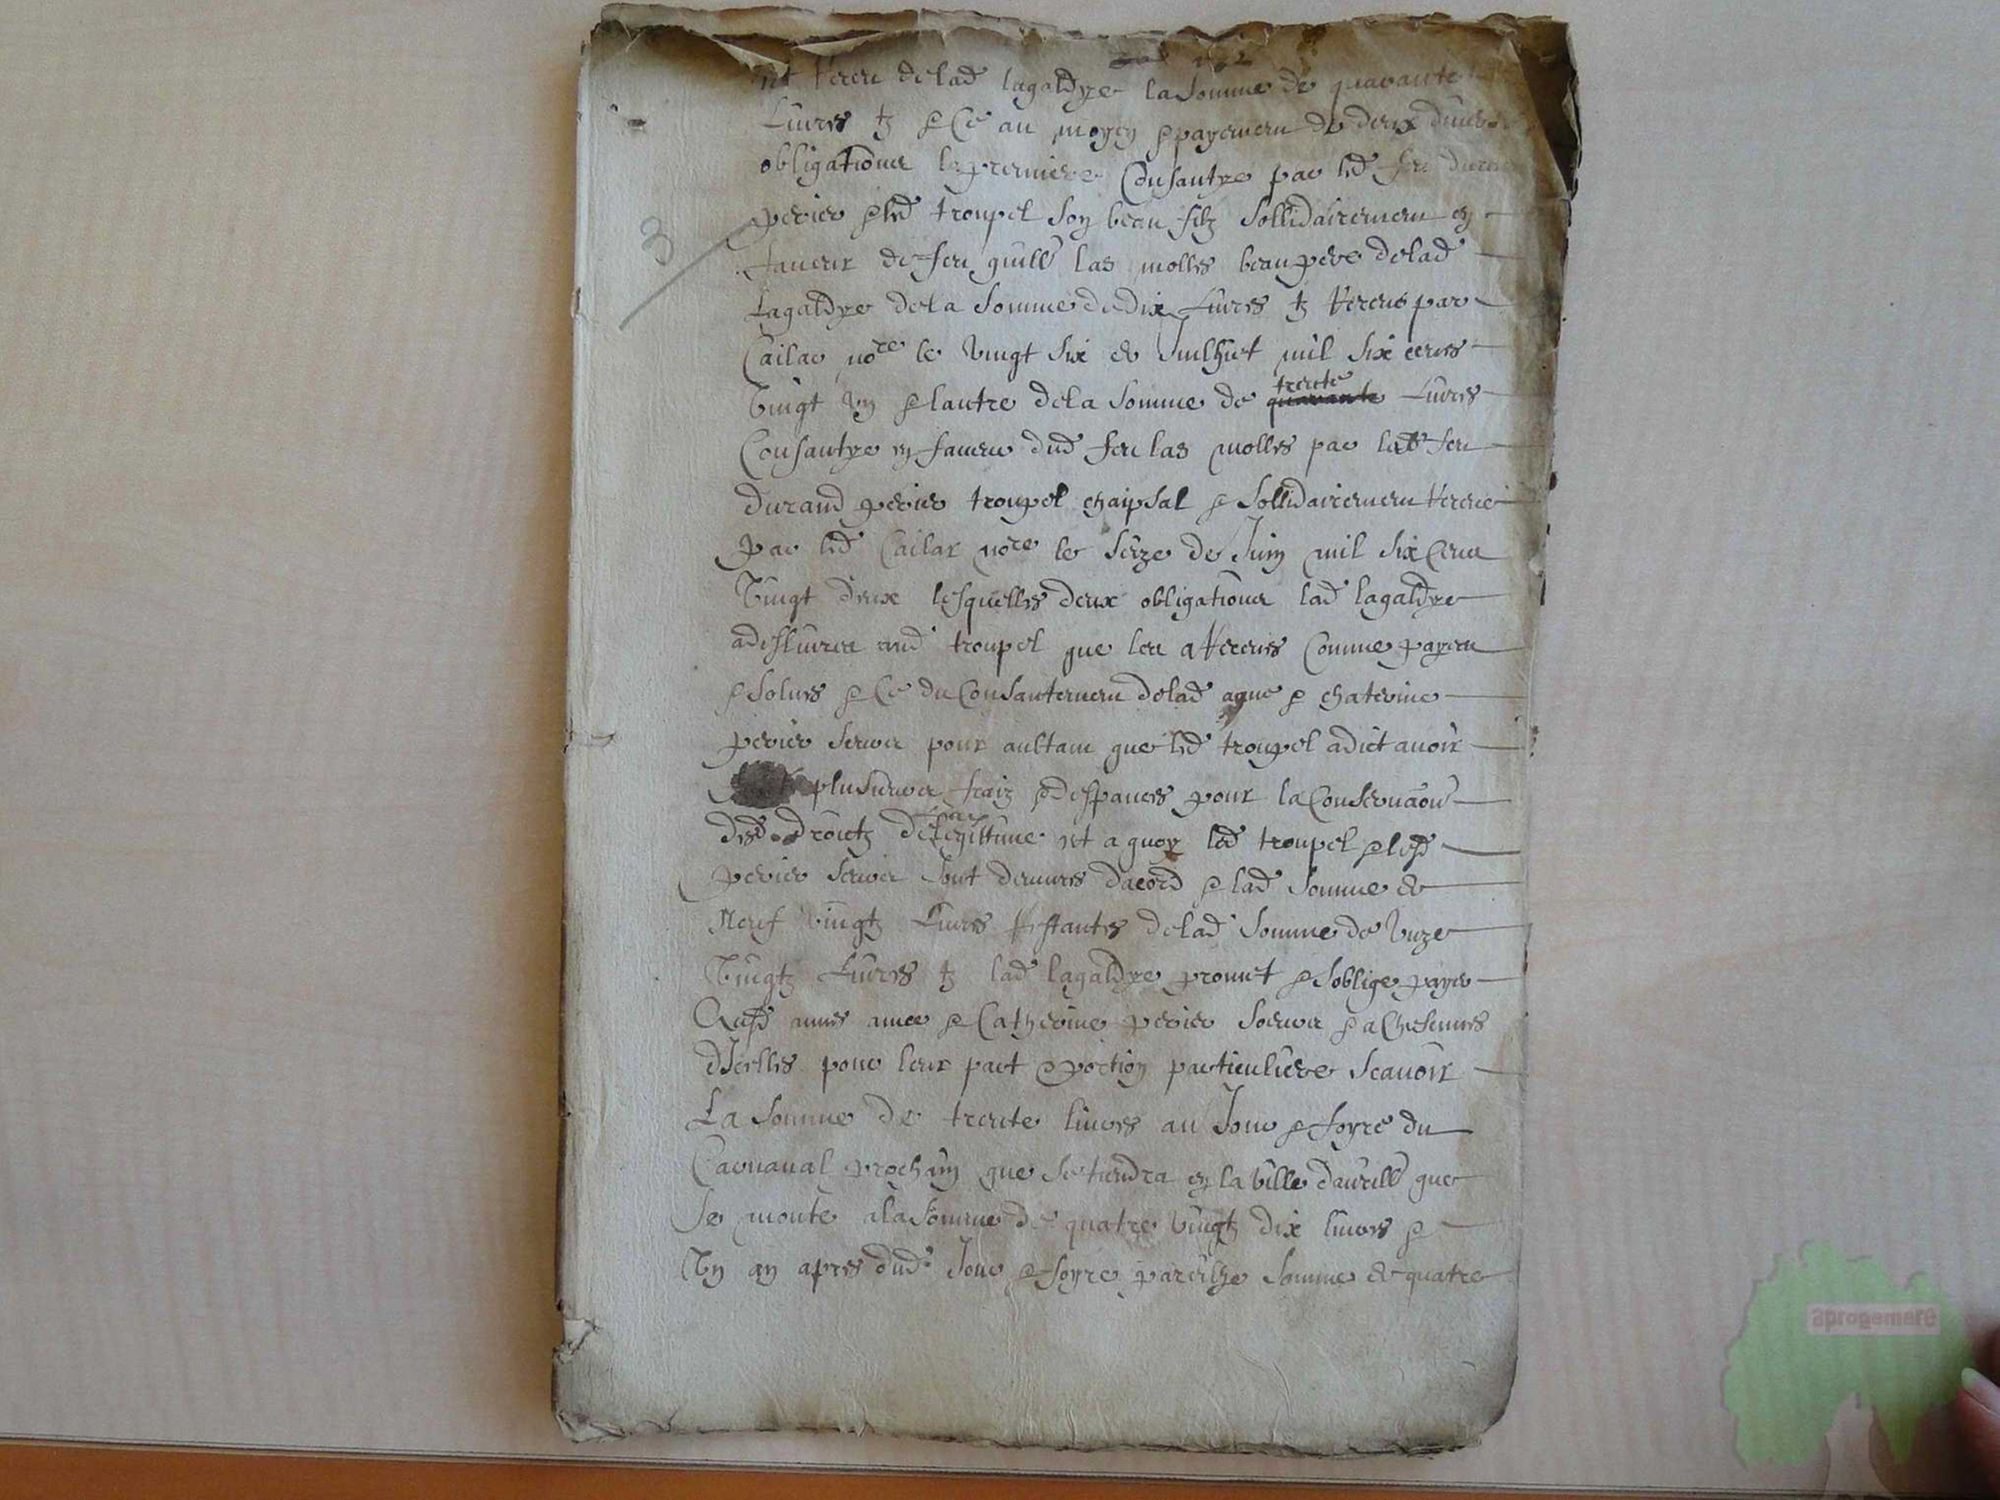 receu de lad lagaldye la somme de quarante
Livres tz & Ce au moyen & payemen de deux diverses
obligationz la premiere Consantye par led feu durand
perier & led troupel son beau filz sollidairemen en
faveur de feu guill las molles beau pere de lad
Lagaldye de la somme de dix Livres tz receue par
Cailar nore le vingt six de Juilhiet mil six cens
Vingt un & lautre de la somme de quarante trente Livres
Consantye en faveur dud feu las molles par led feu
durand perier troupel & sollidairemen receue
par led Cailar nore le seize de Juin mil six Cens
Vingt deux lesquelles deux obligationz lad lagaldye
a deslivrer aud troupel que les a receues Comme payees
& solues & Ce du Consantemen de lad agne & chaterine
perier seurs pour aultan que led troupel a dict avoir
plusieurs fraiz & despances pour la Conservaon
desd droictz de legittime et a quoy led troupel & lesd
perier seurs sont demures dacord & lad somme de
Neuf vingtz Livres restantes de lad somme de unze
Vingtz Livres tz lad lagaldye promet & soblige payer
Ausd & Catherine perier soeurs & a Chescunes
dicelles pour leur part & portion particuliere scavoir
La somme de trente livres au Jour & foyre du
Carnaval prochain que se tiendra en la ville daurill que
se monte a la somme de quatre vingtz dix livres &
Un an apres dud Jour & foyre pareilhe somme de quatre
3
aprogemere